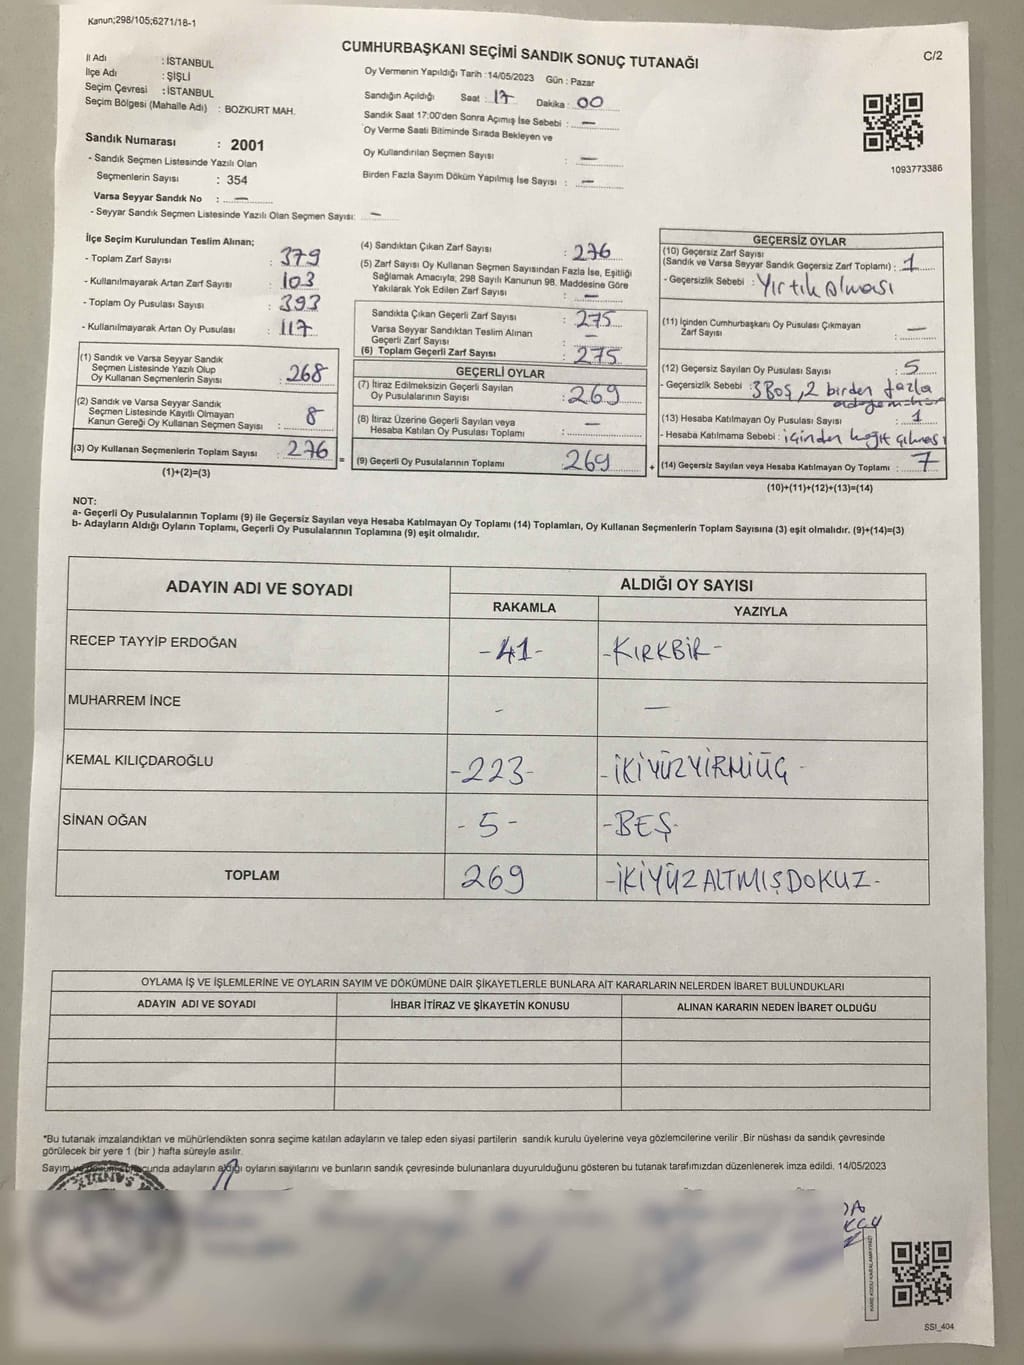 Kanun;298/105;6271/18-1
CUMHURBAŞKANI SEÇİMİ SANDIK SONUÇ TUTANAĞI
C/2
İl Adı : İSTANBUL
İlçe Adı : ŞİŞLİ
Seçim Çevresi : İSTANBUL
Seçim Bölgesi (Mahalle Adı) : BOZKURT MAH.
Oy Vermenin Yapıldığı Tarih :14/05/2023 Gün : Pazar
Sandığın Açıldığı Saat : 17 Dakika : 00
Sandık Saat 17:00'den Sonra Açımış İse Sebebi : —
Oy Verme Saati Bitiminde Sırada Bekleyen ve
Oy Kullandırılan Seçmen Sayısı : —
Birden Fazla Sayım Döküm Yapılmış İse Sayısı : —
1093773386
Sandık Numarası : 2001
- Sandık Seçmen Listesinde Yazılı Olan
Seçmenlerin Sayısı : 354
Varsa Seyyar Sandık No : —
- Seyyar Sandık Seçmen Listesinde Yazılı Olan Seçmen Sayısı: —
İlçe Seçim Kurulundan Teslim Alınan;
- Toplam Zarf Sayısı : 379
- Kullanılmayarak Artan Zarf Sayısı : 103
- Toplam Oy Pusulası Sayısı : 393
- Kullanılmayarak Artan Oy Pusulası : 117
(1) Sandık ve Varsa Seyyar Sandık
Seçmen Listesinde Yazılı Olup
Oy Kullanan Seçmenlerin Sayısı : 268
(2) Sandık ve Varsa Seyyar Sandık
Seçmen Listesinde Kayıtlı Olmayan
Kanun Gereği Oy Kullanan Seçmen Sayısı : 8
(3) Oy Kullanan Seçmenlerin Toplam Sayısı : 276
(1)+(2)=(3)
(4) Sandıktan Çıkan Zarf Sayısı : 276
(5) Zarf Sayısı Oy Kullanan Seçmen Sayısından Fazla İse, Eşitliği
Sağlamak Amacıyla; 298 Sayılı Kanunun 98. Maddesine Göre
Yakılarak Yok Edilen Zarf Sayısı : —
Sandıkta Çıkan Geçerli Zarf Sayısı : 275
Varsa Seyyar Sandıktan Teslim Alınan
Geçerli Zarf Sayısı : —
(6) Toplam Geçerli Zarf Sayısı : 275
GEÇERLİ OYLAR
(7) İtiraz Edilmeksizin Geçerli Sayılan
Oy Pusulalarının Sayısı : 269
(8) İtiraz Üzerine Geçerli Sayılan veya
Hesaba Katılan Oy Pusulası Toplamı : —
= (9) Geçerli Oy Pusulalarının Toplamı 269 +
GEÇERSİZ OYLAR
(10) Geçersiz Zarf Sayısı
(Sandık ve Varsa Seyyar Sandık Geçersiz Zarf Toplamı) : 1
- Geçersizlik Sebebi : Yırtık olması
(11) İçinden Cumhurbaşkanı Oy Pusulası Çıkmayan
Zarf Sayısı : —
(12) Geçersiz Sayılan Oy Pusulası Sayısı : 5
- Geçersizlik Sebebi : 3 Boş, 2 birden fazla
(13) Hesaba Katılmayan Oy Pusulası Sayısı : 1
- Hesaba Katılmama Sebebi : içinden kağıt çıkması
(14) Geçersiz Sayılan veya Hesaba Katılmayan Oy Toplamı : 7
(10)+(11)+(12)+(13)=(14)
NOT:
a- Geçerli Oy Pusulalarının Toplamı (9) ile Geçersiz Sayılan veya Hesaba Katılmayan Oy Toplamı (14) Toplamları, Oy Kullanan Seçmenlerin Toplam Sayısına (3) eşit olmalıdır. (9)+(14)=(3)
b- Adayların Aldığı Oyların Toplamı, Geçerli Oy Pusulalarının Toplamına (9) eşit olmalıdır.
ADAYIN ADI VE SOYADI ALDIĞI OY SAYISI
RAKAMLA YAZIYLA
RECEP TAYYİP ERDOĞAN -41- -KIRKBİR-
MUHARREM İNCE - —
KEMAL KILIÇDAROĞLU -223- -İKİYÜZYİRMİÜÇ-
SİNAN OĞAN -5- -BEŞ-
TOPLAM 269 -İKİYÜZALTMIŞDOKUZ-
OYLAMA İŞ VE İŞLEMLERİNE VE OYLARIN SAYIM VE DÖKÜMÜNE DAİR ŞİKAYETLERLE BUNLARA AİT KARARLARIN NELERDEN İBARET BULUNDUKLARI
ADAYIN ADI VE SOYADI İHBAR İTİRAZ VE ŞİKAYETİN KONUSU ALINAN KARARIN NEDEN İBARET OLDUĞU
*Bu tutanak imzalandıktan ve mühürlendikten sonra seçime katılan adayların ve talep eden siyasi partilerin sandık kurulu üyelerine veya gözlemcilerine verilir .Bir nüshası da sandık çevresinde
görülecek bir yere 1 (bir ) hafta süreyle asılır.
Sayım ve adayların aldığı oyların sayılarını ve bunların sandık çevresinde bulunanlara duyurulduğunu gösteren bu tutanak tarafımızdan düzenlenerek imza edildi. 14/05/2023
KARE KODU KARALAMAYINIZ!
SSI_404